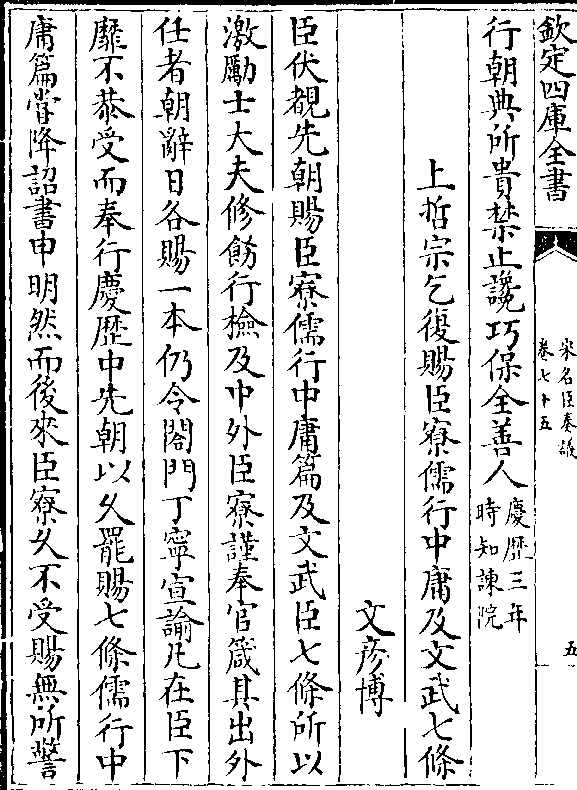 欽定四庫全書
宋名臣奏議
卷七十五
五
行朝典所貴禁止讒巧保全善人慶歴三年時知諫院
上哲宗乞復賜臣寮儒行中庸及文武七條
文彦博
臣伏覩先朝賜臣寮儒行中庸篇及文武臣七條所以
激勵士大夫修飭行檢及中外臣寮謹奉官箴其出外
任者朝辭日各賜一本仍令閤門丁寧宣諭凡在臣下
靡不恭受而奉行慶歴中先朝以久罷賜七條儒行中
庸篇嘗降詔書申明然而後來臣寮久不受賜無所警